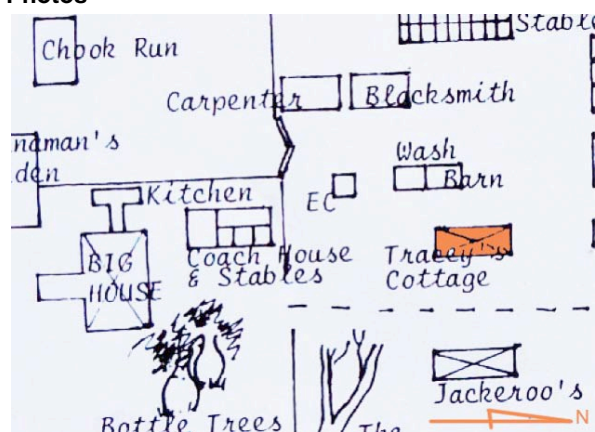 Photos
Stable
Chook Run
Carpenter
Blacksmith
naman's
den
Wash
Barn
Kitchen
EC
BIG
HOUSE
Coach House
& Stables
Tracey's
Cottage
Jackeroo's
Bottle Trees
The
N